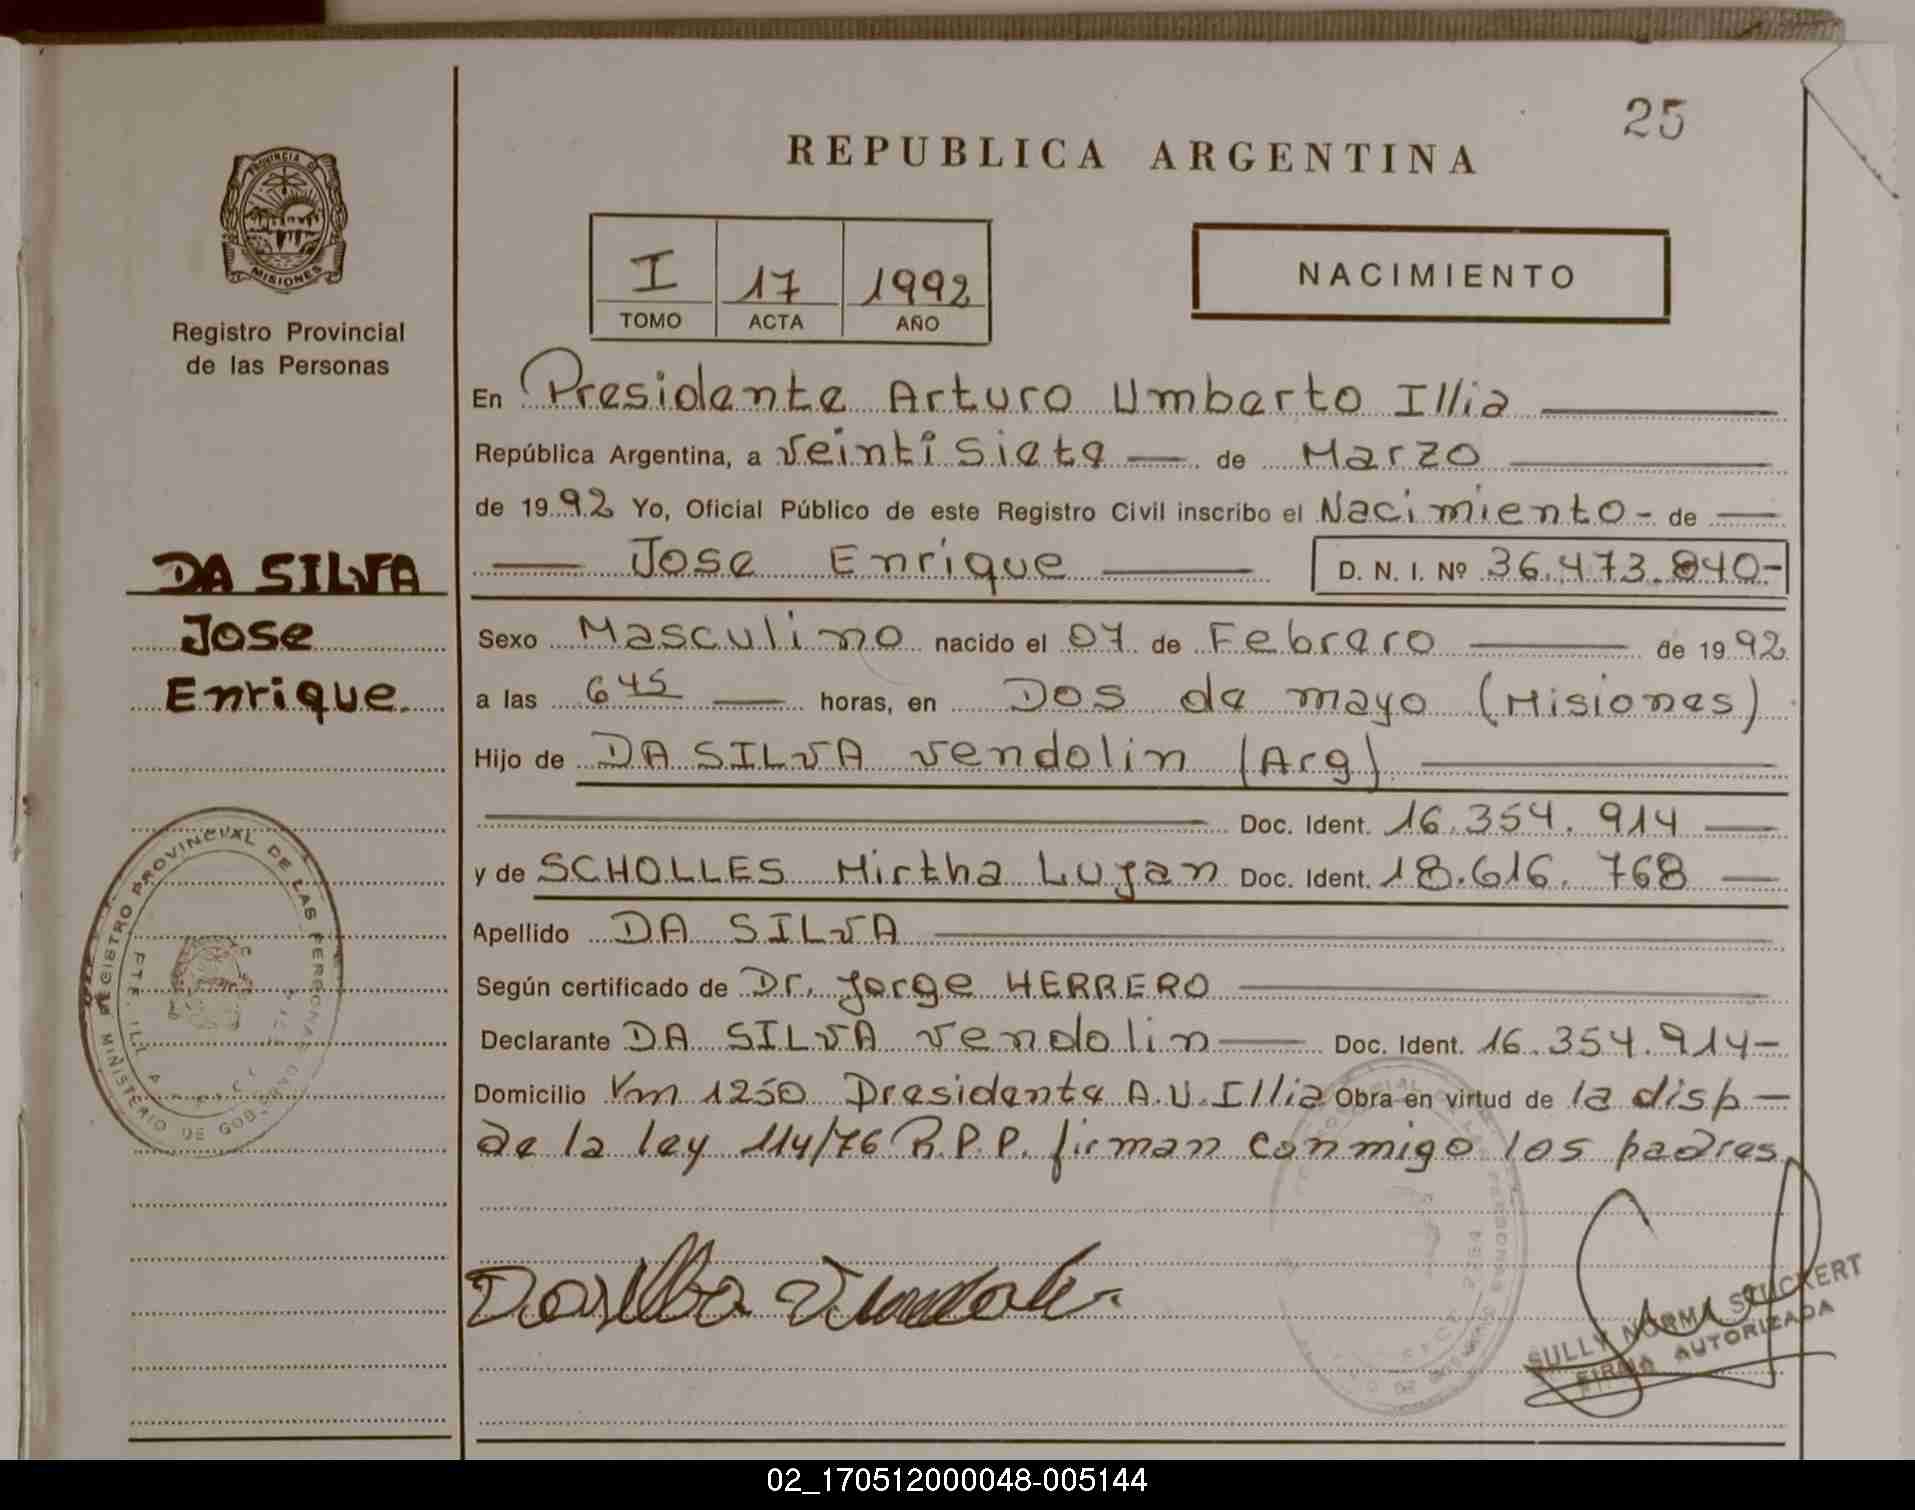 25
REPUBLICA ARGENTINA
PROVINCIA DE
MISIONES
Registro Provincial
de las Personas
I 17 1992
TOMO ACTA AÑO
NACIMIENTO
En Presidente Arturo Umberto Illia
República Argentina, a veintisiete de Marzo
de 1992 Yo, Oficial Público de este Registro Civil inscribo el Nacimiento - de
Jose Enrique D. N. I. Nº 36.473.840-
DA SILVA
Jose
Enrique.
Sexo Masculino nacido el 07 de Febrero de 1992
a las 645 horas, en Dos de mayo (Misiones)
Hijo de DA SILVA vendolin (Arg)
Doc. Ident. 16.354.914
y de SCHOLLES Mirtha Lujan Doc. Ident. 18.616.768
Apellido DA SILVA
Según certificado de Dr. Jorge HERRERO
Declarante DA SILVA vendolin Doc. Ident. 16.354.914-
Domicilio Km 1250 Presidente A.U.Illia Obra en virtud de la disp-
de la ley 114/76 R.P.P. firman conmigo los padres
REGISTRO PROVINCIAL DE LAS PERSONAS
MINISTERIO DE GOBIERNO
SULLY NORMA STUCKERT
FIRMA AUTORIZADA
02_170512000048-005144